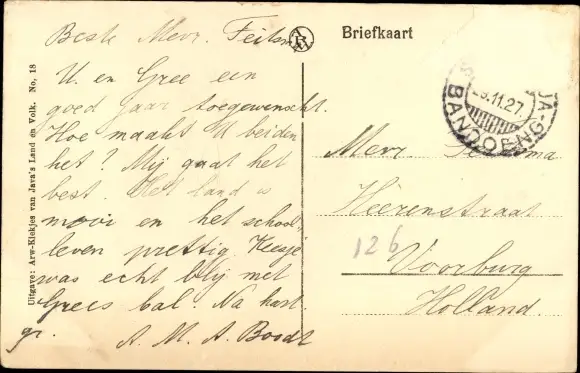 Briefkaart
Beste Mevr. Feitsma
U. en Gree een
goed jaar toegewenscht.
Hoe maakt U beiden
het? Mij gaat het
best. Het land is
mooi en het school-
leven prettig. Keesje
was echt blij met
Grees bal. Na hart.
gr. A. M. A. Boodt
Mevr.
Heerenstraat
126
Voorburg
Holland.
29.11.27.
BANDOENG
Uitgave: Arw-Kiekjes van Java's Land en Volk. No, 18